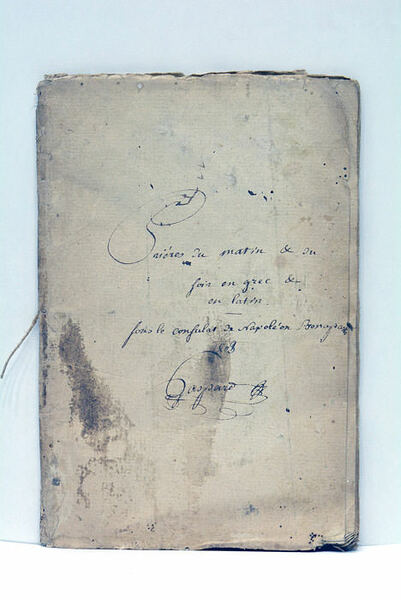 Priéres du matin & du
soir en grec &
en latin.
sous le consulat de Napoléon Bonapar
Gaspard